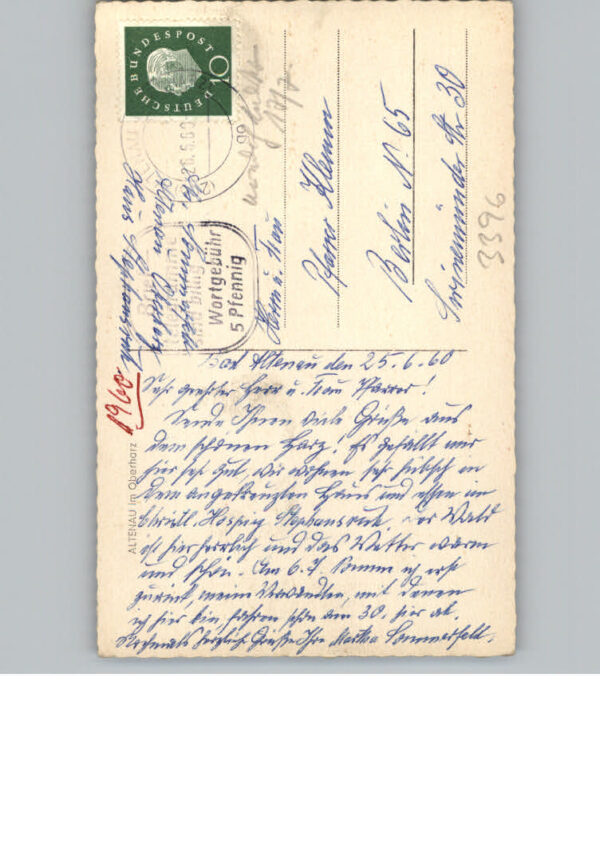 Bad Altenau den 25.6.60
Sehr geehrter Herr u. Frau Pfarrer!
Sende Ihnen viele Grüße aus
dem schönen Harz. Es gefällt mir
hier sehr gut, wir wohnen sehr hübsch in
dem angekreuzten Haus und essen im
christl. Hospiz Stephansruh. Der Wald
ist hier herrlich und das Wetter warm
und schön. Am 6.7. komm ich erst
zurück, meine Verwandten, mit denen
ich hier bin, fahren schon am 30. hier ab.
Nochmals herzliche Grüße Ihre Martha Sommerfeldt.
Herrn u. Frau
Pfarrer Klemm
Berlin N. 65
Swinemünder Str 30
Altenau
Haus Stephansruh
1960
3396
ALTENAU im Oberharz
DEUTSCHE BUNDESPOST
10
26.6.60
sind billig
Wortgebühr
5 Pfennig